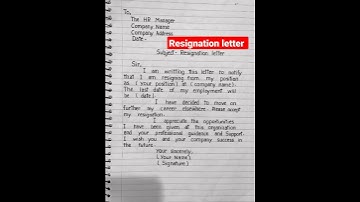 To,
The HR Manager
Company Name
Company Address
Date -
Resignation letter
Subject - Resignation letter
Sir,
I am writting this letter to notify
that I am resigning from my position
as (Your position) at (company name).
The last date of my employment will
be (date).
I have decided to move on
further my career elsewhere. Please accept
my resignation.
I appreciate the opportunities
I have been given at this organisation
and your professional guidance and support.
I wish you and your company success in
the future.
Your sincerely,
(Your Name)
(Signature)